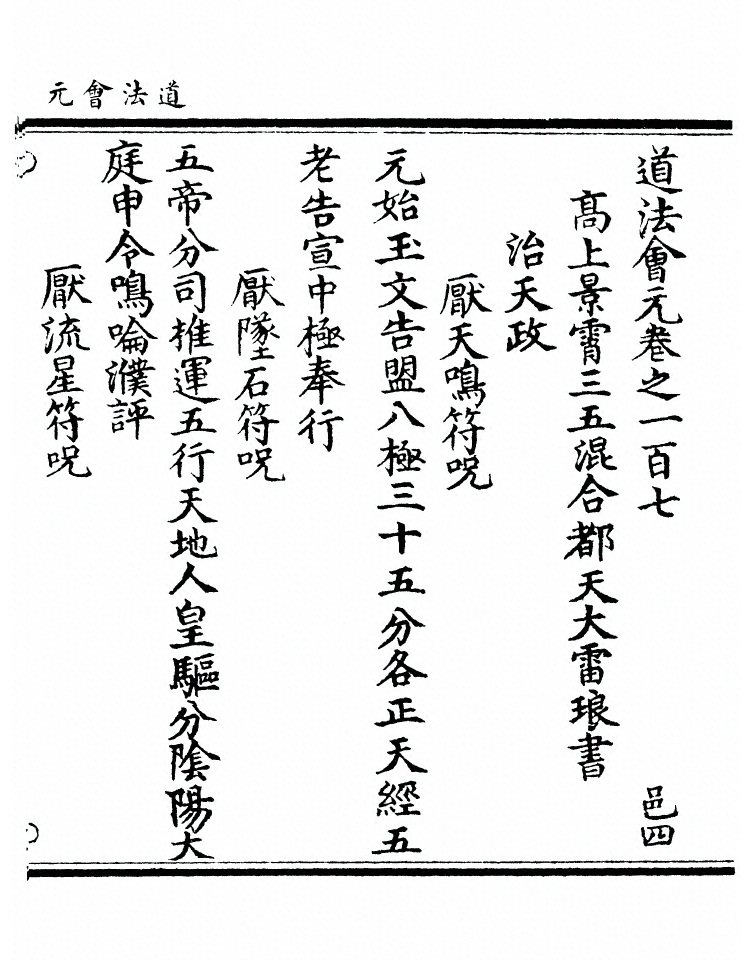 道法會元
道法會元卷之一百七
邑四
高上景霄三五混合都天大雷琅書
治天政
厭天鳴符呪
元始玉文告盟八極三十五分各正天經五
老告宣中極奉行
厭墜石符呪
五帝分司推運五行天地人皇驅分陰陽大
庭申令鳴㖮濮評
厭流星符呪